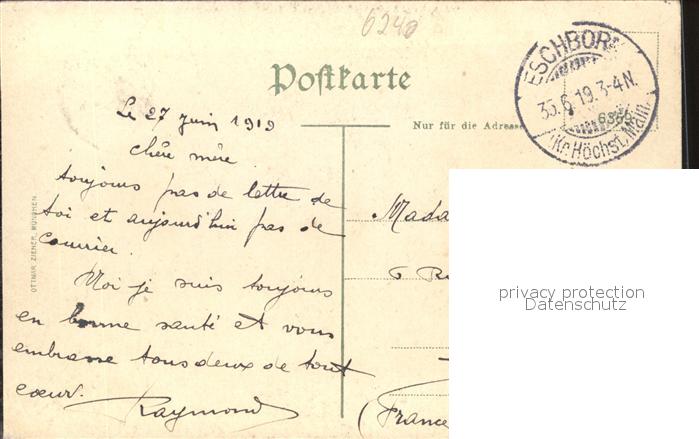 6240
Postkarte
ESCHBORN
30.6.19.3-4N.
(Kr. Höchst, Main)
6369
Nur für die Adresse
Le 27 juin 1919
Chère mère
toujours pas de lettre de
toi et aujourd'hui pas de
courrier.
Moi je suis toujours
en bonne santé et vous
embrasse tous deux de tout
cœur.
Raymond
OTTMAR ZIEHER, MÜNCHEN
Mada
6 Ru
(France
privacy protection
Datenschutz